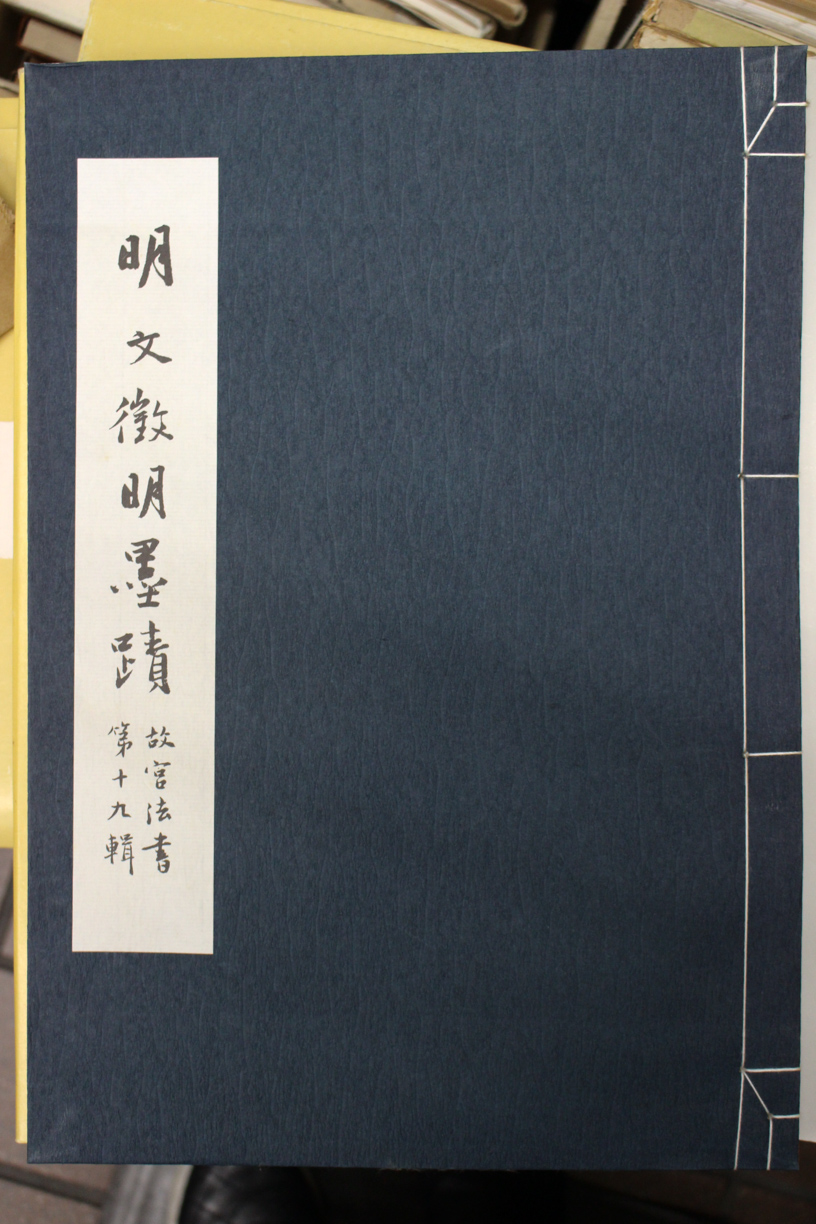 明 文徵明墨蹟
故宮法書
第十九輯